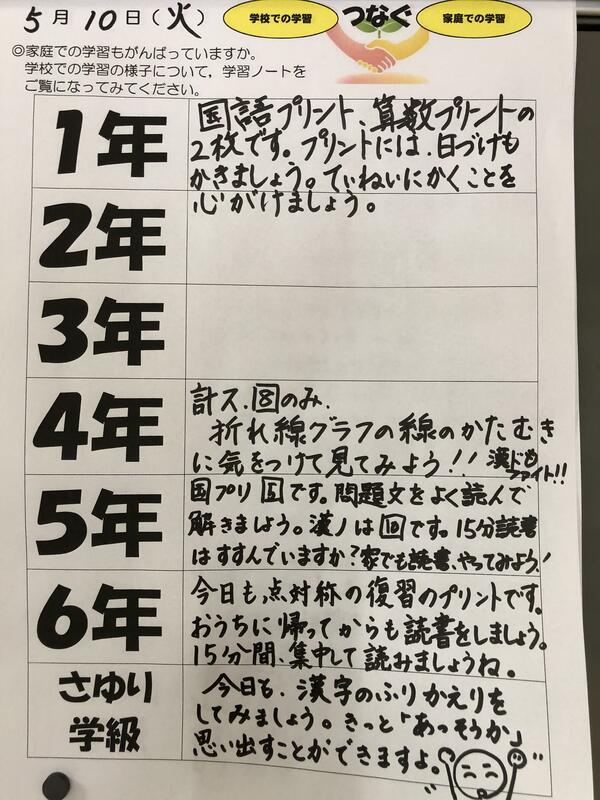 5月10日(火)
学校での学習 つなぐ 家庭での学習
◎家庭での学習もがんばっていますか。
学校での学習の様子について,学習ノートを
ご覧になってみてください。
1年
国語プリント、算数プリントの
2枚です。プリントには、日づけも
かきましょう。ていねいにかくことを
心がけましょう。
2年
3年
4年
計ス、⑧のみ、
折れ線グラフの線のかたむき
に気をつけて見てみよう!!
漢ドも
ファイト!!
5年
国プリ 5です。問題文をよく読んで
解きましょう。漢ノは⑩です。15分読書
はすすんでいますか?家でも読書、やってみよう!
6年
今日も点対称の復習のプリントです。
おうちに帰ってからも読書をしましょう。
15分間、集中して読みましょうね。
さゆり
学級
今日も、漢字のふりかえりを
してみましょう。きっと「あっそうか」
思い出すことができますよ。